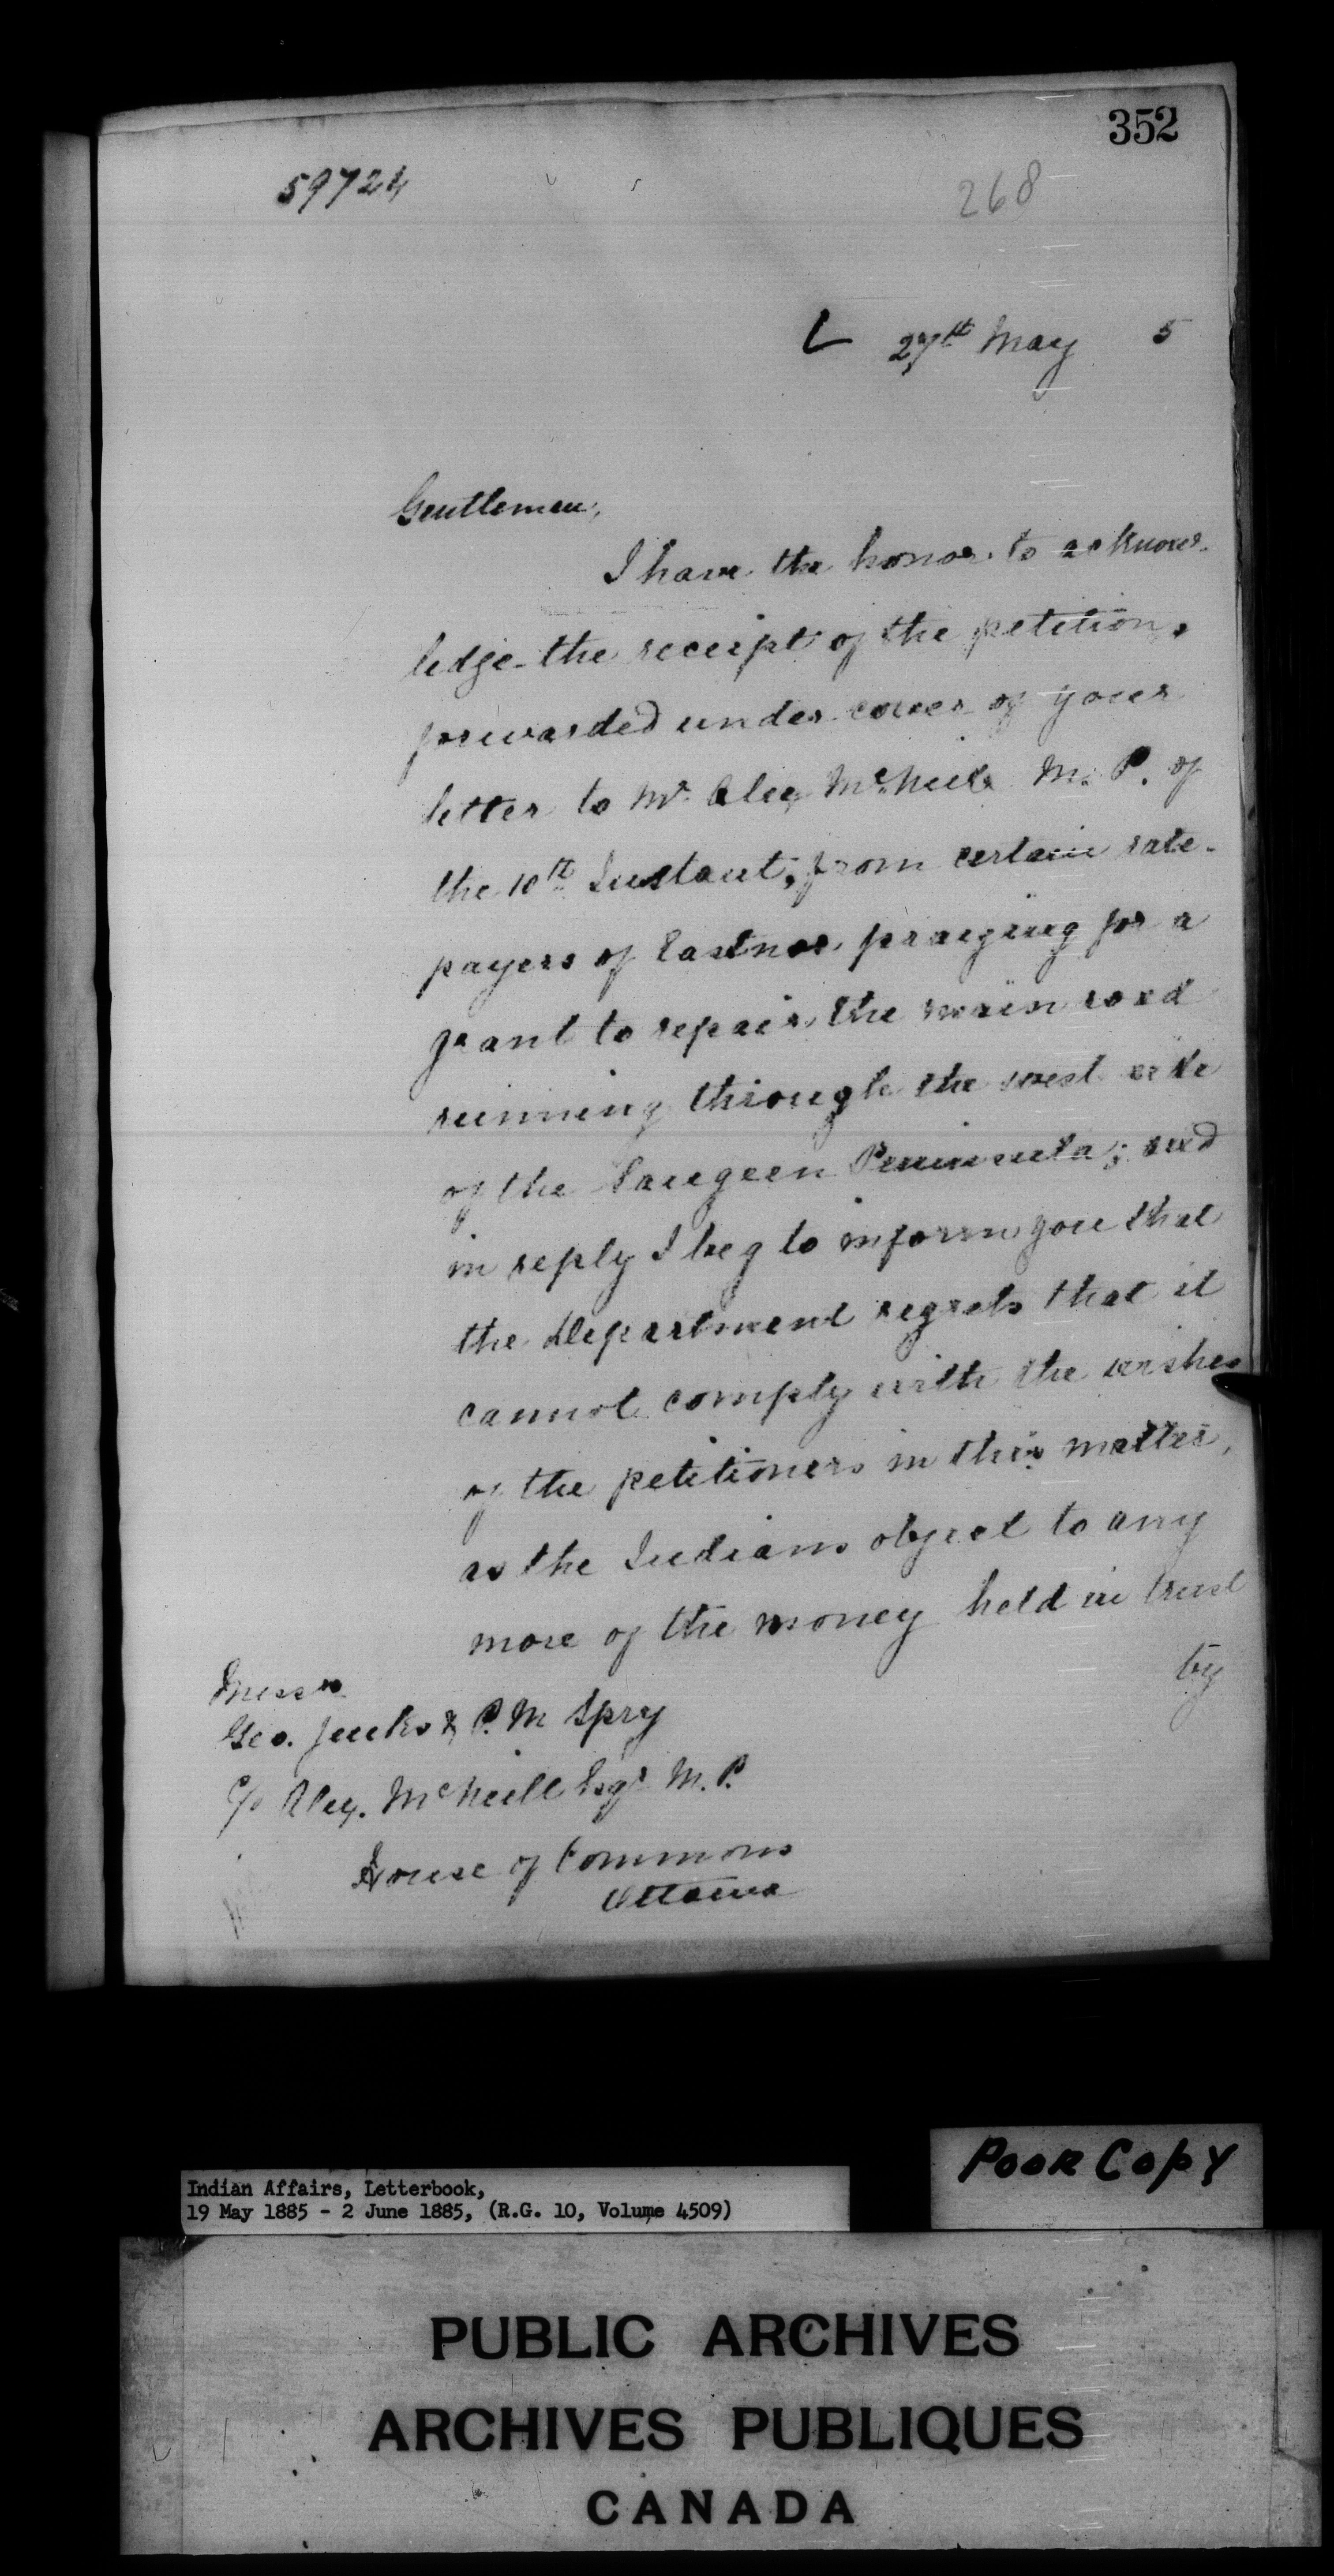 352
59724
268
L 27th May 5
Gentlemen,
I have the honor to acknow-
ledge the receipt of the petition,
forwarded under cover of your
letter to Mr. Alex McNeill M. P. of
the 10th Instant, from certain rate-
payers of Eastnor, praying for a
grant to repair the main road
running through the west side
of the Saugeen Peninsula; and
in reply I beg to inform you that
the Department regrets that it
cannot comply with the wishes
of the petitioners in this matter,
as the Indians object to any
more of the money held in trust
by
Messrs
Geo. & P. M Spry
c/o Alex. McNeill Esqr M. P.
House of Commons
Ottawa
Poor Copy
Indian Affairs, Letterbook,
19 May 1885 - 2 June 1885, (R.G. 10, Volume 4509)
PUBLIC ARCHIVES
ARCHIVES PUBLIQUES
CANADA